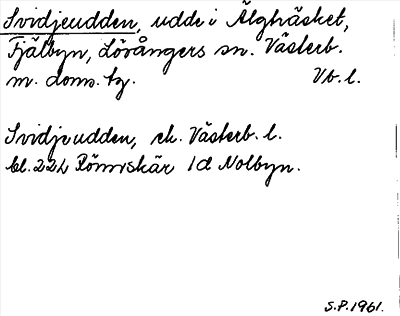 Svidjeudden, udde i Älghäsket,
Fjälbyn, Lövångers sn. Västerb.
m. doms. tg. Vb. l.
Svidjeudden, ek. Västerb. l.
bl. 22h Rönnskär 1d Nolbyn.
S.P. 1961.